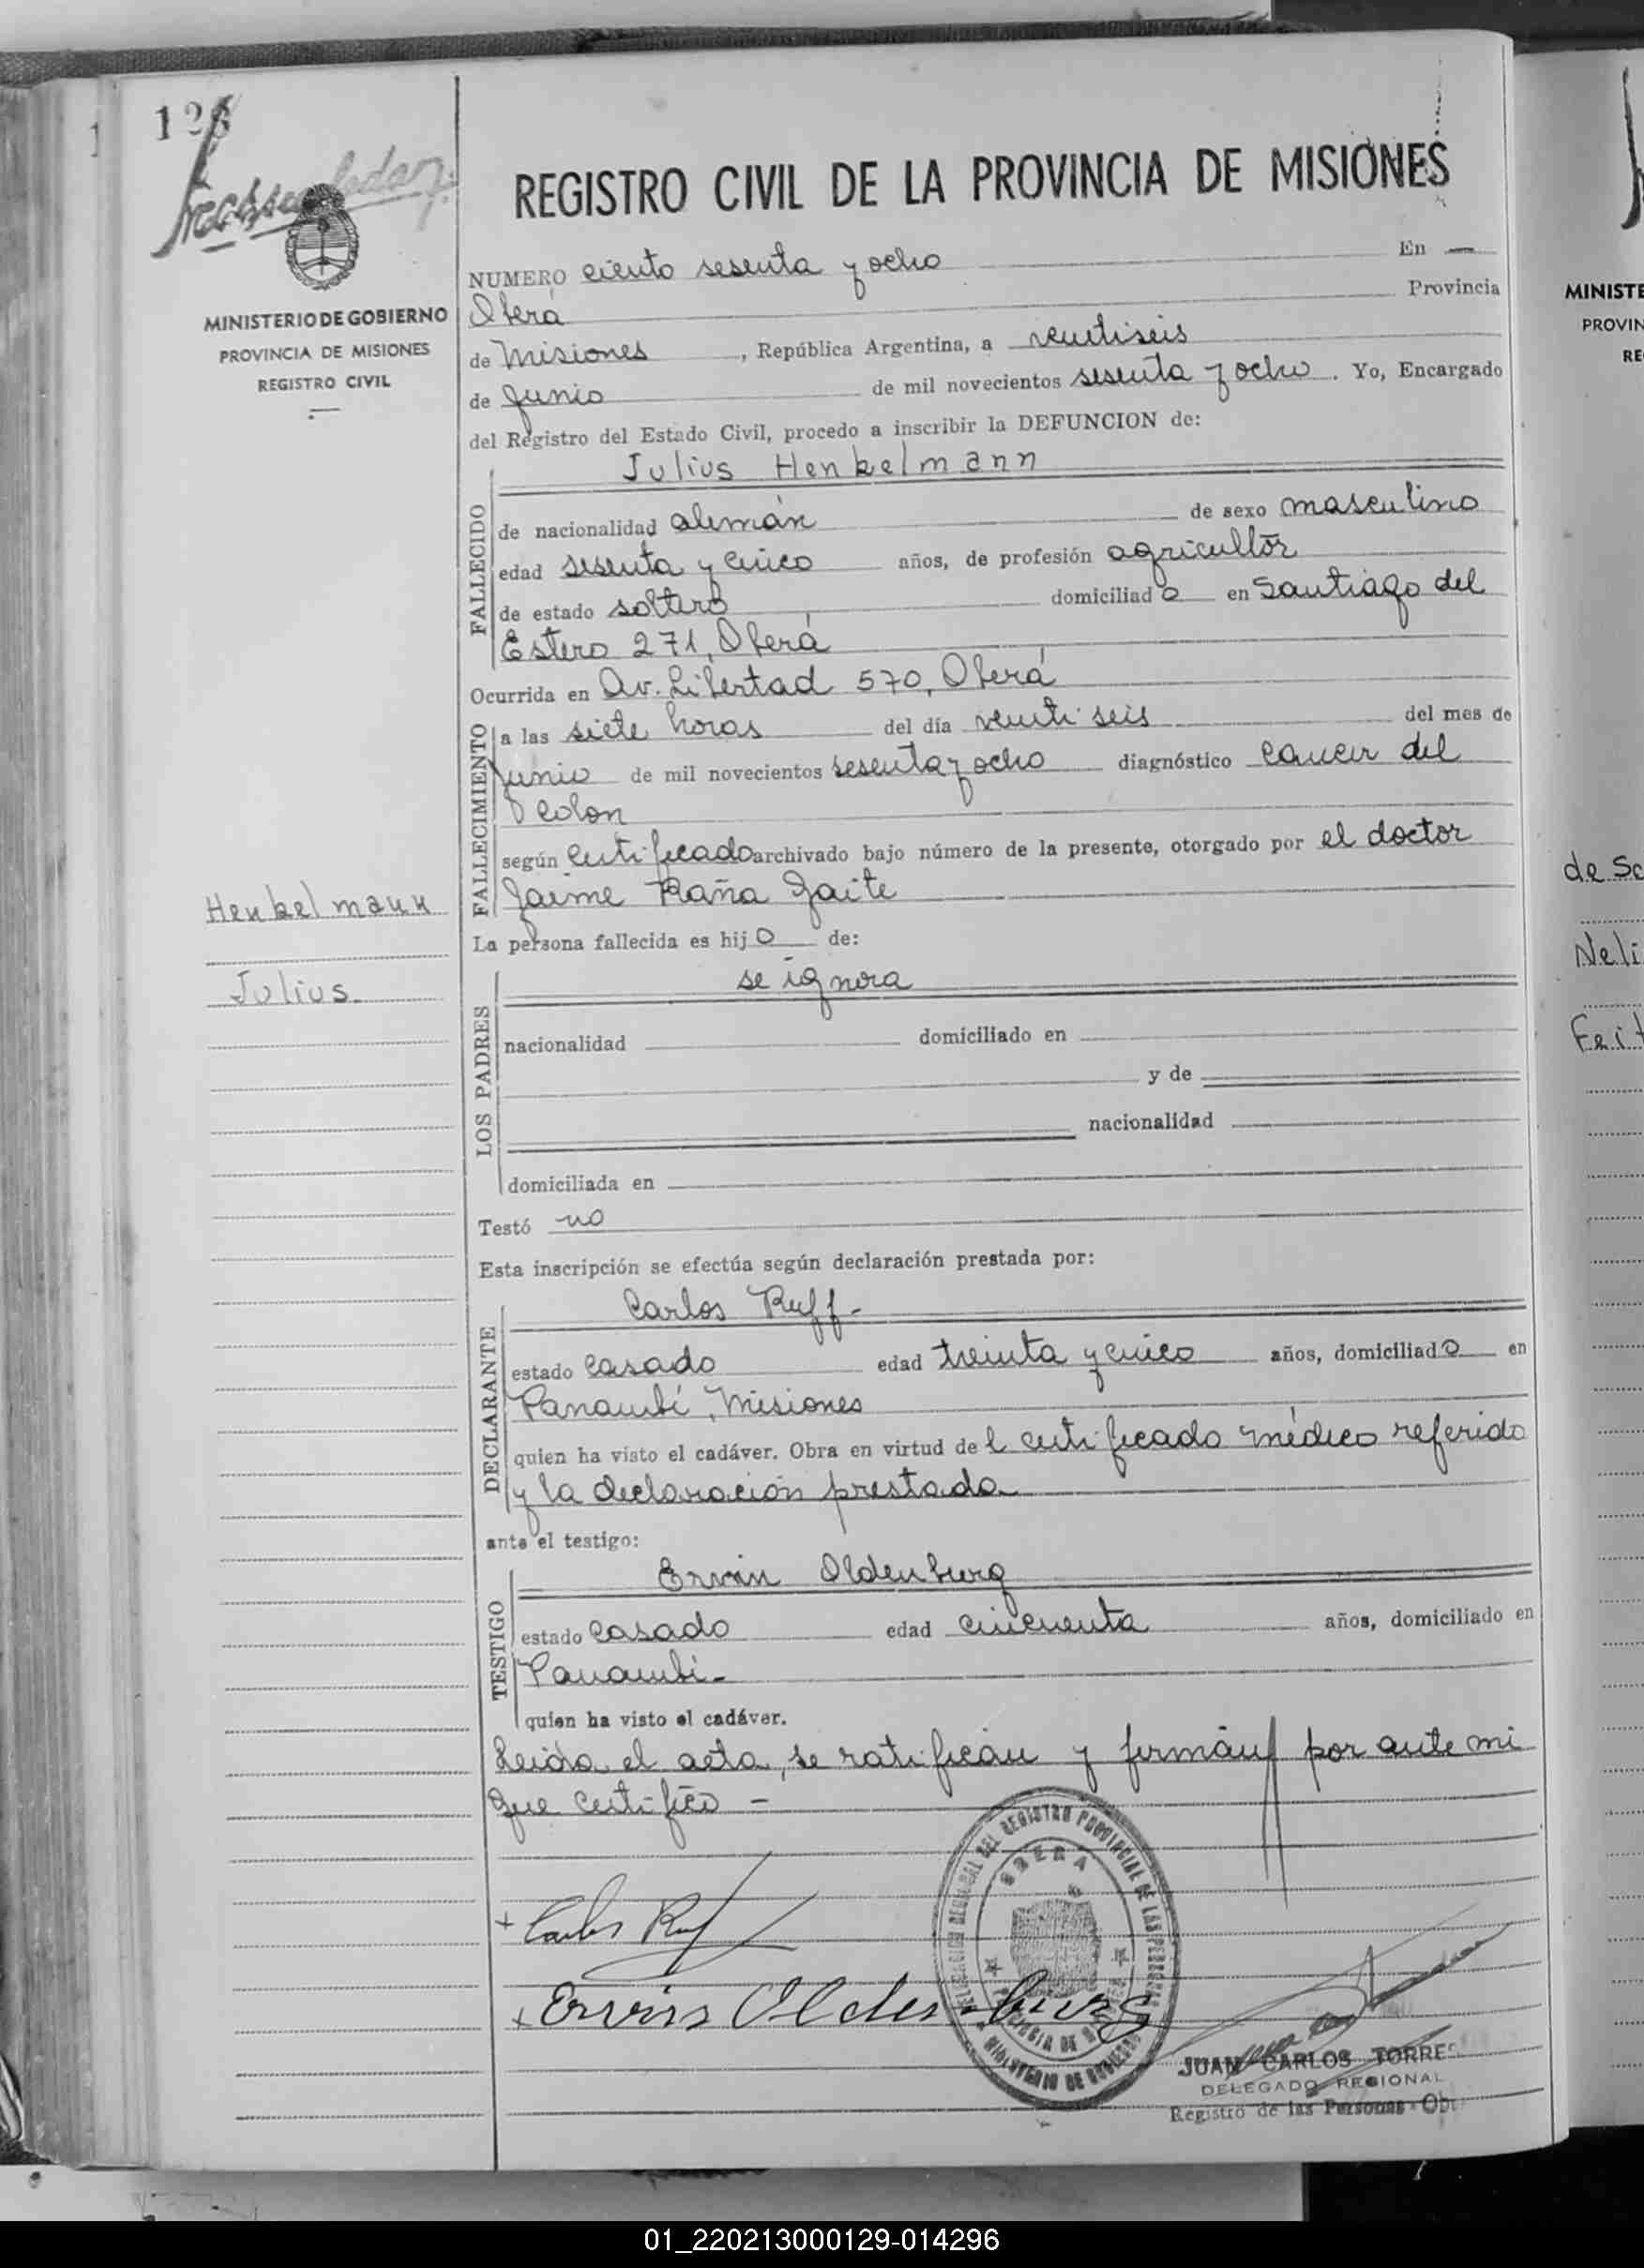 REGISTRO CIVIL DE LA PROVINCIA DE MISIONES
MINISTERIO DE GOBIERNO
PROVINCIA DE MISIONES
REGISTRO CIVIL
NUMERO ciento sesenta y ocho En —
Oberá Provincia
de Misiones, República Argentina, a veintiseis
de Junio de mil novecientos sesenta y ocho. Yo, Encargado
del Registro del Estado Civil, procedo a inscribir la DEFUNCION de:
Julius Henkelmann
FALLECIDO
de nacionalidad alemán de sexo masculino
edad sesenta y cinco años, de profesión agricultor
de estado soltero domiciliado en Santiago del
Estero 271, Oberá
Ocurrida en Av. Libertad 570, Oberá
FALLECIMIENTO
a las siete horas del día veintiseis del mes de
Junio de mil novecientos sesenta y ocho diagnóstico cancer del
colon
según certificado archivado bajo número de la presente, otorgado por el doctor
Jaime Raña Gaite
Henkelmann
Julius
La persona fallecida es hijo de:
LOS PADRES
se ignora
nacionalidad domiciliado en
y de
nacionalidad
domiciliada en
Testó no
Esta inscripción se efectúa según declaración prestada por:
DECLARANTE
Carlos Ruff-
estado casado edad treinta y cinco años, domiciliado en
Panambí, Misiones
quien ha visto el cadáver. Obra en virtud del certificado médico referido
y la declaración prestada
ante el testigo:
TESTIGO
Erwin Oldenburg
estado casado edad cincuenta años, domiciliado en
Panambí-
quien ha visto el cadáver.
Leida el acta, se ratifican y firman por ante mi
que certifico -
Carlos Ruf
Erwin Oldenburg
OBERA
JUAN CARLOS TORRES
DELEGADO REGIONAL
Registro de las Personas - Ob
MINISTE
PROVIN
RE
de Sc
Neli
Feit
01_220213000129-014296